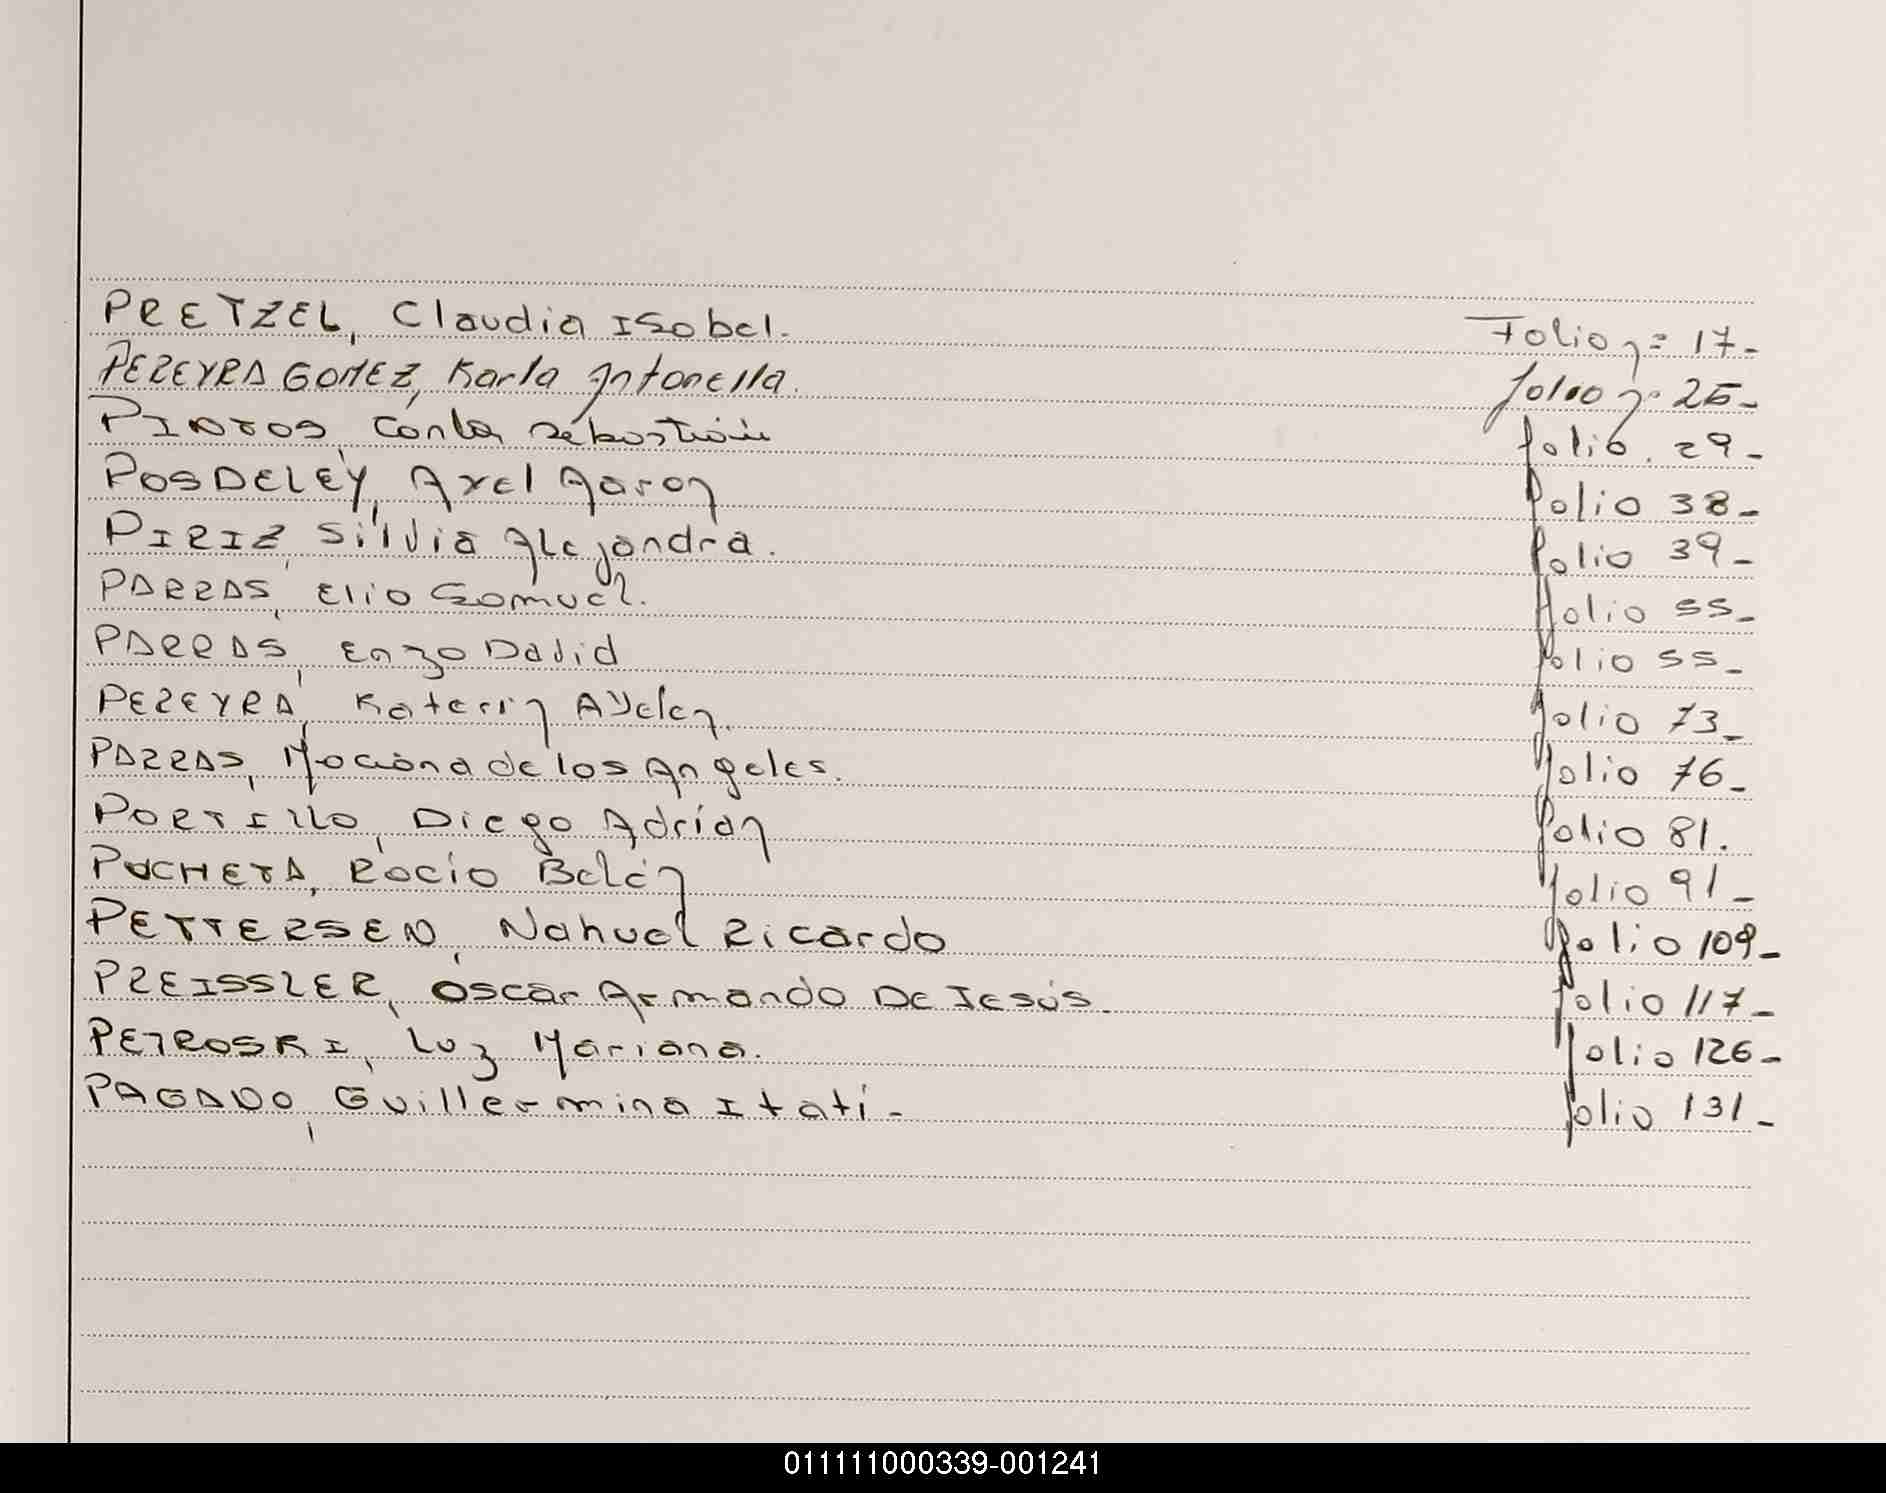 PRETZEL, Claudia Isabel. Folio n= 17-
PEREYRA GOMEZ, Karla Antonella. folio n: 25-
PINTOS, Carla Sebastián folio. 29-
POSDELEY, Axel Aaron folio 38-
PIRIZ, Silvia Alejandra. folio 39-
PARRAS, Elio Samuel. folio 55-
PARRAS, Enzo David folio 55-
PEREYRA, Katerin Ayelen. folio 73-
PARRAS, Mariana de los Angeles. folio 76-
PORTILLO, Diego Adrián folio 81.
PUCHETA, Rocío Belén folio 91-
PETTERSEN, Nahuel Ricardo folio 109-
PREISSLER, Oscar Armando De Jesús. folio 117-
PETROSKI, Luz Mariana. folio 126-
PAGANO, Guillermina Itatí- folio 131-
011111000339-001241